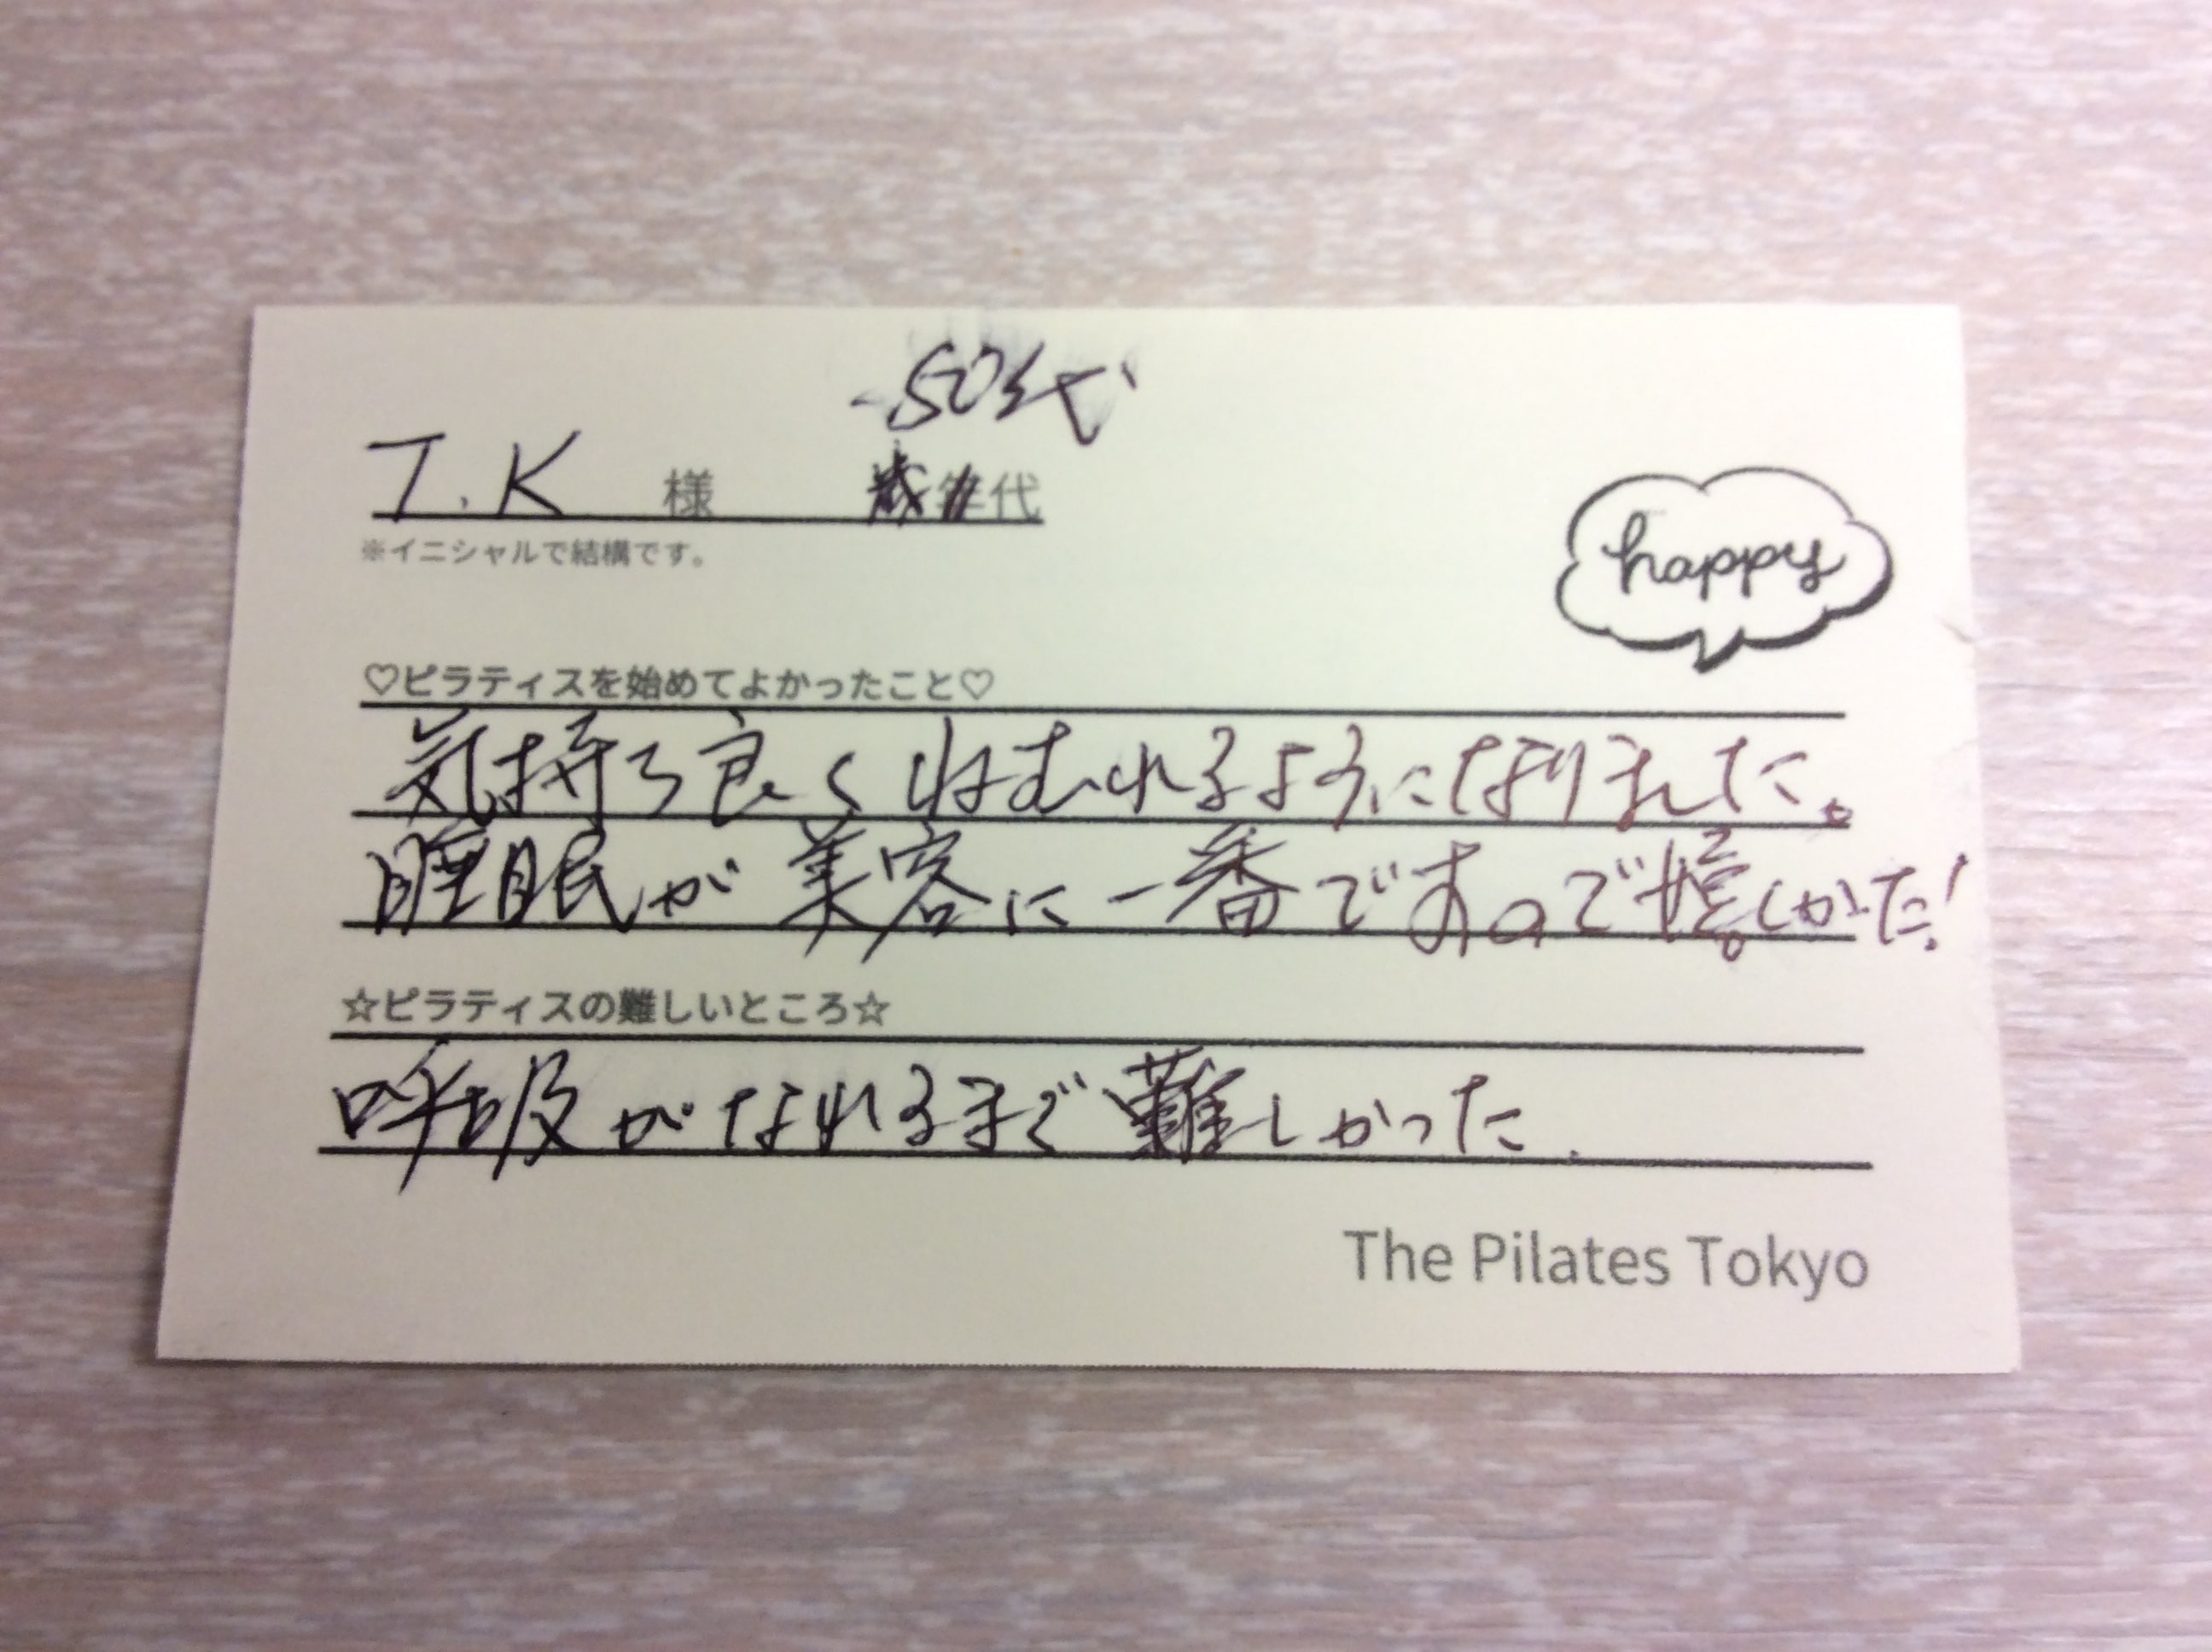 50代
T.K 様 年代
※イニシャルで結構です。
happy
♡ピラティスを始めてよかったこと♡
気持ち良くねむれるようになりました。
睡眠が美容に一番ですので嬉しかった!
☆ピラティスの難しいところ☆
呼吸がなれるまで難しかった.
The Pilates Tokyo